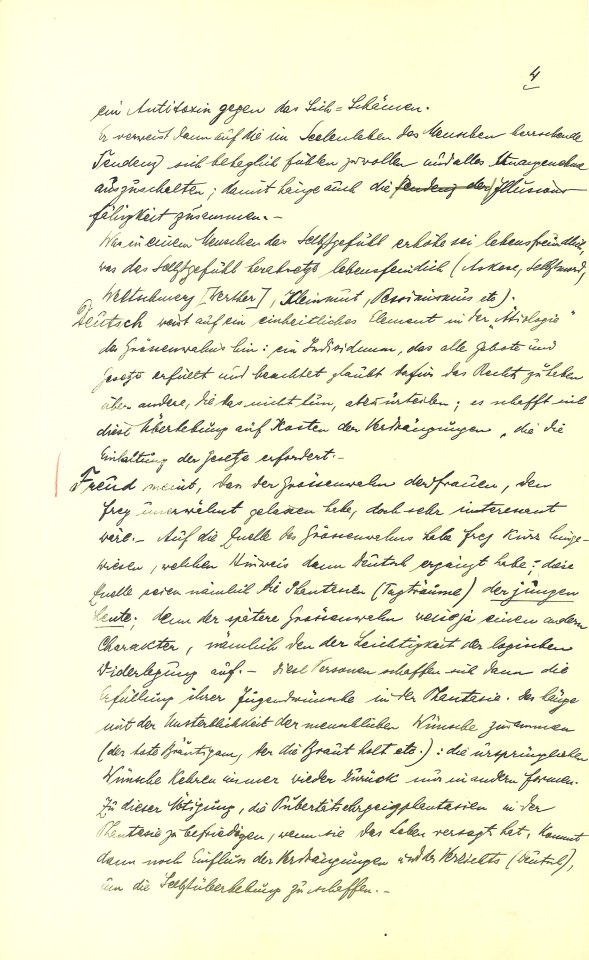 4
ein Antitoxin gegen das Sich-Schämen.
Er verweist dann auf die im Seelenleben des Menschen herrschende
Tendenz sich behaglich fühlen zu wollen und alles Unangenehme
auszuschalten; damit hänge auch die Tendenz der Illusions
fähigkeit zusammen.-
Was in einem Menschen das Selbstgefühl erhöhe sei lebensfreundlich,
was das Selbstgefühl herabsetze lebensfeindlich (Askese, Selbstmord,
Weltschmerz [Werther], Kleinmut, Pessimismus etc).
Deutsch weist auf ein einheitliches Element in der „Ätiologie"
des Grössenwahns hin: ein Individuum, das alle Gebote und
Gesetze erfüllt und beachtet glaubt dafür das Recht zu haben
über andere, die das nicht tun, abzuurteilen; es schafft sich
diese Überhebung auf Kosten der Verdrängungen, die die
Einhaltung der Gesetze erfordert.-
Freud meint, das der Grössenwahn der Frauen, den
Frey unerwähnt gelassen habe, doch sehr interessant
wäre.- Auf die Quelle des Grössenwahns habe Frey kurz hinge-
wiesen, welchen Hinweis dann Deutsch ergänzt habe; diese
Quelle seien nämlich die Phantasien (Tagträume) der jungen
Leute; denn der spätere Grössenwahn weise ja einen andern
Charakter, nämlich den der Leichtigkeit der logischen
Widerlegung auf.- Diese Personen schaffen sich dann die
Erfüllung ihrer Jugendwünsche in der Phantasie. Das hänge
mit der Unsterblichkeit der menschlichen Wünsche zusammen
(der tote Bräutigam, der die Braut holt etc.): die ursprünglichen
Wünsche kehren immer wieder zurück nur in andern Formen.
Zu dieser Nötigung, die Pubertätsehrgeizphantasien in der
Phantasie zu befriedigen, wenn sie das Leben versagt hat, kommt
dann noch Einfluss der Verdrängungen und des Verzichts (Deutsch),
um die Selbstüberhebung zu schaffen.-